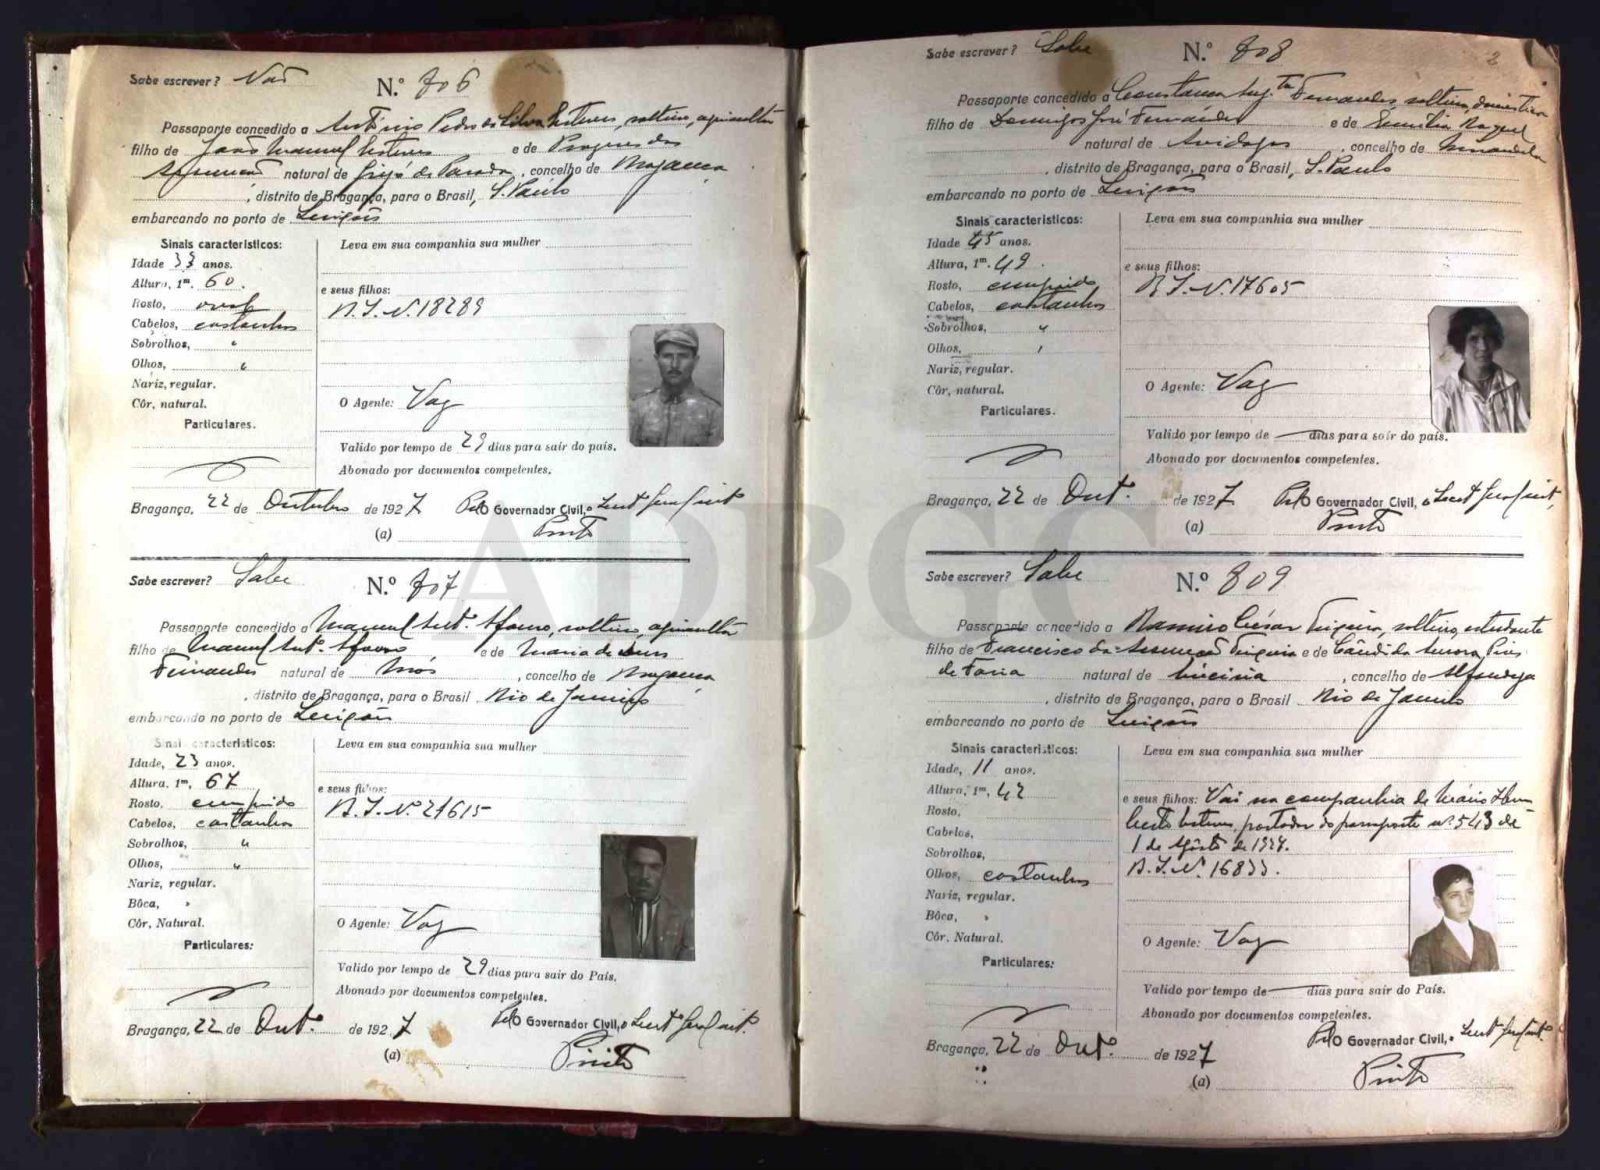 Sabe escrever? Não N.º 706
Passaporte concedido a António Pedro da Silva Esteves, solteiro, agricultor
filho de João Manuel Esteves e de Prazeres da
Assunção natural de Grijó de Parada, concelho de Bragança
, distrito de Bragança, para o Brasil, S. Paulo
embarcando no porto de Leixões
Sinais característicos:
Idade 33 anos.
Altura, 1m. 60.
Rosto, oval
Cabelos, castanhos
Sobrolhos, "
Olhos, "
Nariz, regular.
Côr, natural.
Particulares.
Leva em sua companhia sua mulher
e seus filhos:
B. I. N. 18289
O Agente: Vaz
Valido por tempo de 29 dias para saír do país.
Abonado por documentos competentes.
Bragança, 22 de Outubro de 1927 Pelo Governador Civil, o Secret.º Geral int.º
(a) Pinto
Sabe escrever? Sabe N.º 707
Passaporte concedido a Manuel Ant.º Afonso, solteiro, agricultor
filho de Manuel Ant.º Afonso e de Maria de Jesus
Fernandes natural de Mós, concelho de Bragança
, distrito de Bragança, para o Brasil Rio de Janeiro
embarcando no porto de Leixões
Sinais característicos:
Idade, 23 anos.
Altura. 1m, 67
Rosto. comprido
Cabelos, castanhos
Sobrolhos, "
Olhos, "
Nariz, regular.
Bôca, "
Côr, Natural.
Particulares:
Leva em sua companhia sua mulher
e seus filhos:
B. I. Nº 21615
O Agente: Vaz
Valido por tempo de 29 dias para saír do País.
Abonado por documentos competentes.
Bragança, 22 de Out.º de 1927 Pelo Governador Civil, o Secret.º Geral int.º
(a) Pinto
Sabe escrever? Sabe N.º 708
2
Passaporte concedido a Constança Aug.ta Fernandes, solteira, doméstica
filho de Domingos José Fernandes e de Emília Raquel
natural de Avidagos, concelho de Mirandela
, distrito de Bragança, para o Brasil, S. Paulo
embarcando no porto de Leixões
Sinais característicos:
Idade 45 anos.
Altura, 1m. 49.
Rosto, comprido
Cabelos, castanhos
Sobrolhos, "
Olhos, "
Nariz, regular.
Côr, natural.
Particulares.
Leva em sua companhia sua mulher
e seus filhos:
B. I. N. 17605
O Agente: Vaz
Valido por tempo de — dias para saír do país.
Abonado por documentos competentes.
Bragança, 22 de Out.º de 1927 Pelo Governador Civil, o Secret.º Geral int.º
(a) Pinto
Sabe escrever? Sabe N.º 809
Passaporte concedido a Ramiro César Trigueiro, solteiro, estudante
filho de Francisco da Assunção Trigueiro e de Cândida Aurora Pires
de Faria natural de, concelho de Alfandega
, distrito de Bragança, para o Brasil Rio de Janeiro
embarcando no porto de Leixões
Sinais característicos:
Idade, 11 anos.
Altura, 1m, 42
Rosto,
Cabelos,
Sobrolhos,
Olhos, castanhos
Nariz, regular.
Bôca, "
Côr. Natural.
Particulares:
Leva em sua companhia sua mulher
e seus filhos: Vai na companhia de Mário
Esteves, portador do passaporte nº 543 de
1 de Agosto de 1927.
B. I. N. 16833.
O Agente: Vaz
Valido por tempo de — dias para saír do País.
Abonado por documentos competentes.
Bragança, 22 de Out.º de 1927 Pelo Governador Civil, o Secret.º Geral int.º
(a) Pinto
ADBGC